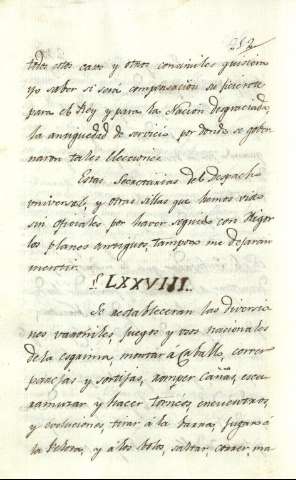 252
todos estos casos y otros consimiles quisiera
yo saber si será compensacion suficiente
para el Rey y para la Nacion desgraciada,
la antiguedad de servicio por donde se gober
naron tales elecciones.
Estas Secretarias del Despacho
universal, y otras sillas que hemos visto
sin oficiales por haver seguido con rigor
los planes antiguos, tampoco me dejaran
mentir.
LXXVIII.
Se restableceran las diversio
nes varoniles, juegos y usos nacionales
de la esgrima, montar á Caballo, correr
parejas y sortijas, romper Cañas, esca
ramuzar y hacer torneos, encuentros,
y evoluciones, tirar á la barra, jugar á
la Pelota, y á los bolos, saltar, correr, ma